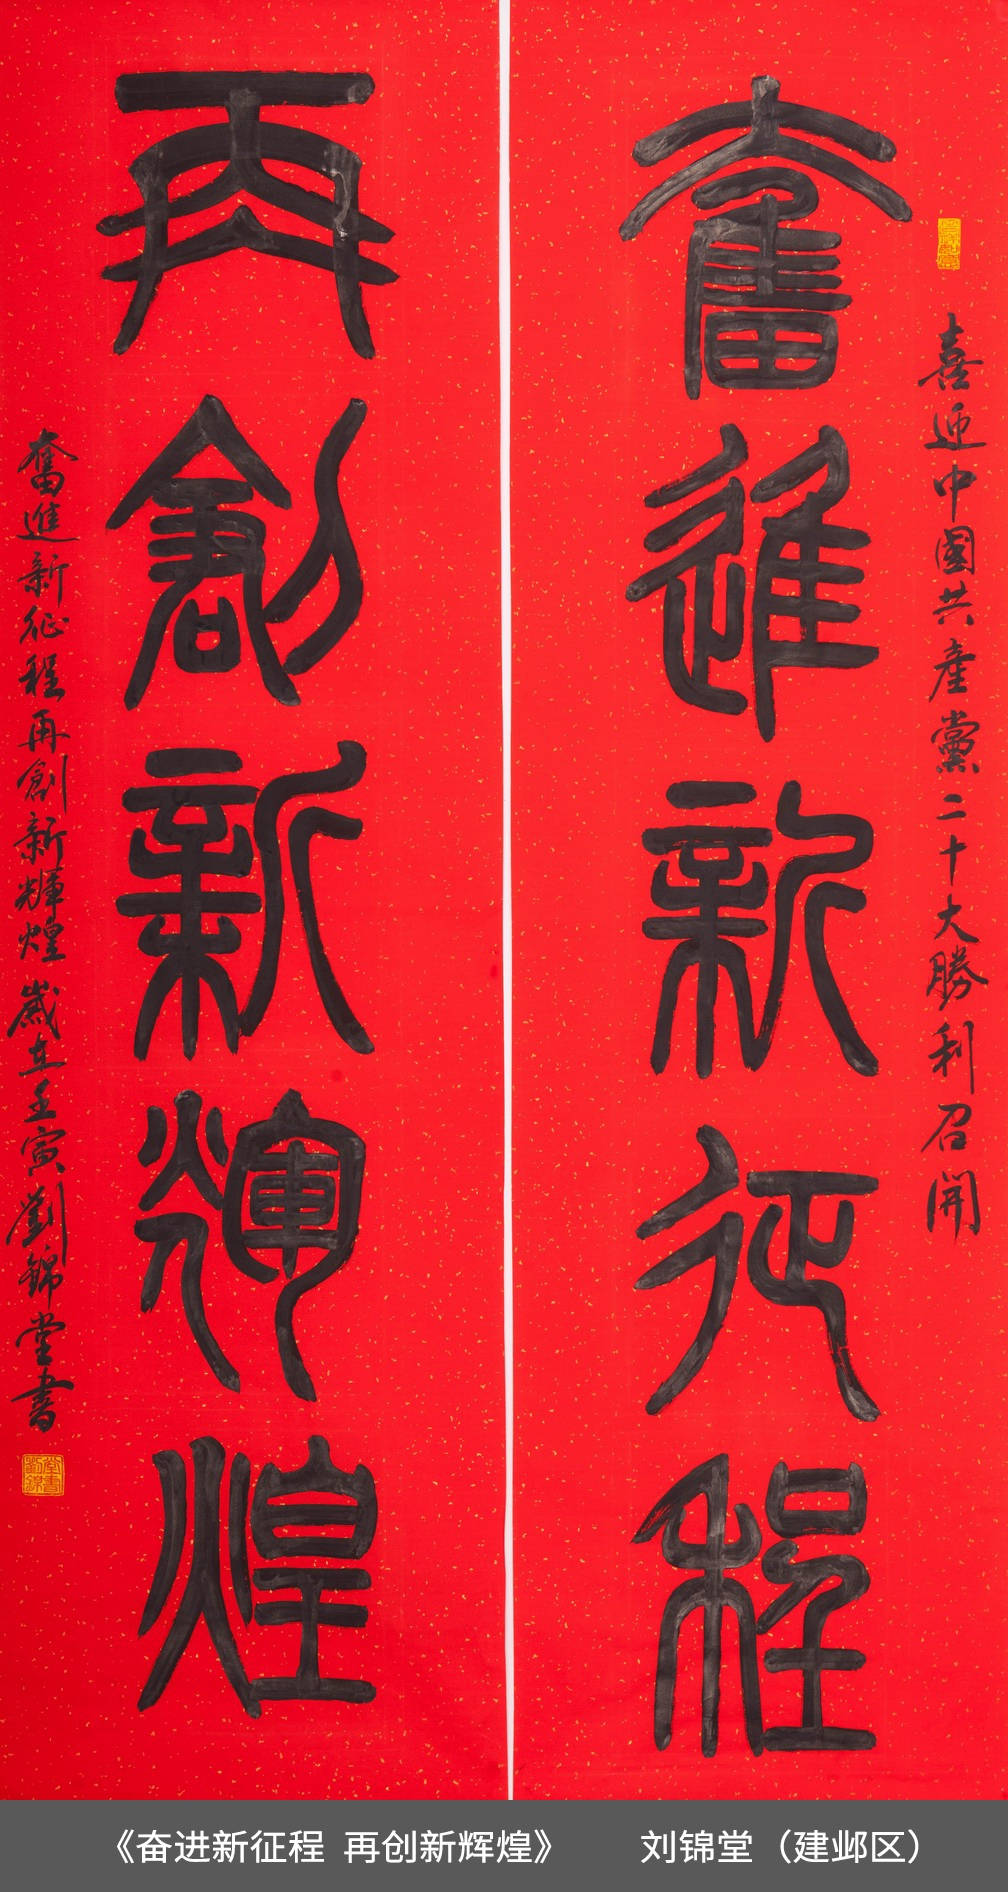 喜迎中國共產黨二十大勝利召開
奮進新征程
再創新輝煌
奮進新征程再創新輝煌歲在壬寅劉錦堂書
《奋进新征程 再创新辉煌》 刘锦堂（建邺区）